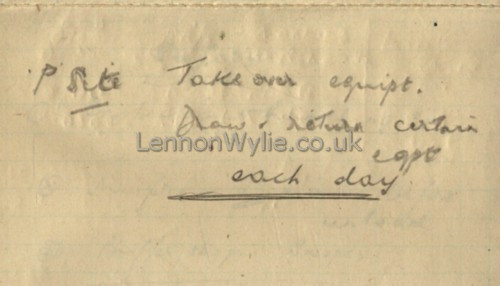 P Site Take over equipt.
Draw & return certain
LennonWylie.co.uk
eqpt
each day